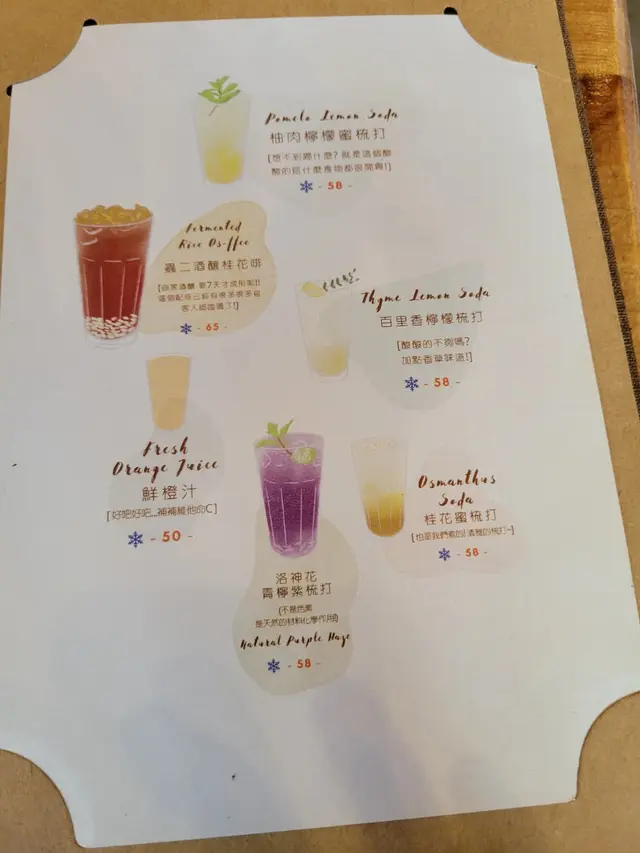 Pomelo Lemon Soda
柚肉檸檬蜜梳打
[想不到揀什麼? 就是這個酸
酸的話什麼食物都很開胃!]
- 58 -
Fermented
Rice Os-ffee
蟲二酒釀桂花啡
[自家酒釀 要7天才成形呢!!
這個配搭已經有很多很多
客人認證過了!]
- 65 -
Thyme Lemon Soda
百里香檸檬梳打
[酸酸的不夠嗎?
加點香草味道!]
- 58 -
Fresh
Orange Juice
鮮橙汁
[好吧好吧...補補維他命C]
- 50 -
Osmanthus
Soda
桂花蜜梳打
[也是我們煮的! 清雅的梳打~]
- 58 -
洛神花
青檸紫梳打
(不是色素
是天然的材料化學作用)
Natural Purple Haze
- 58 -